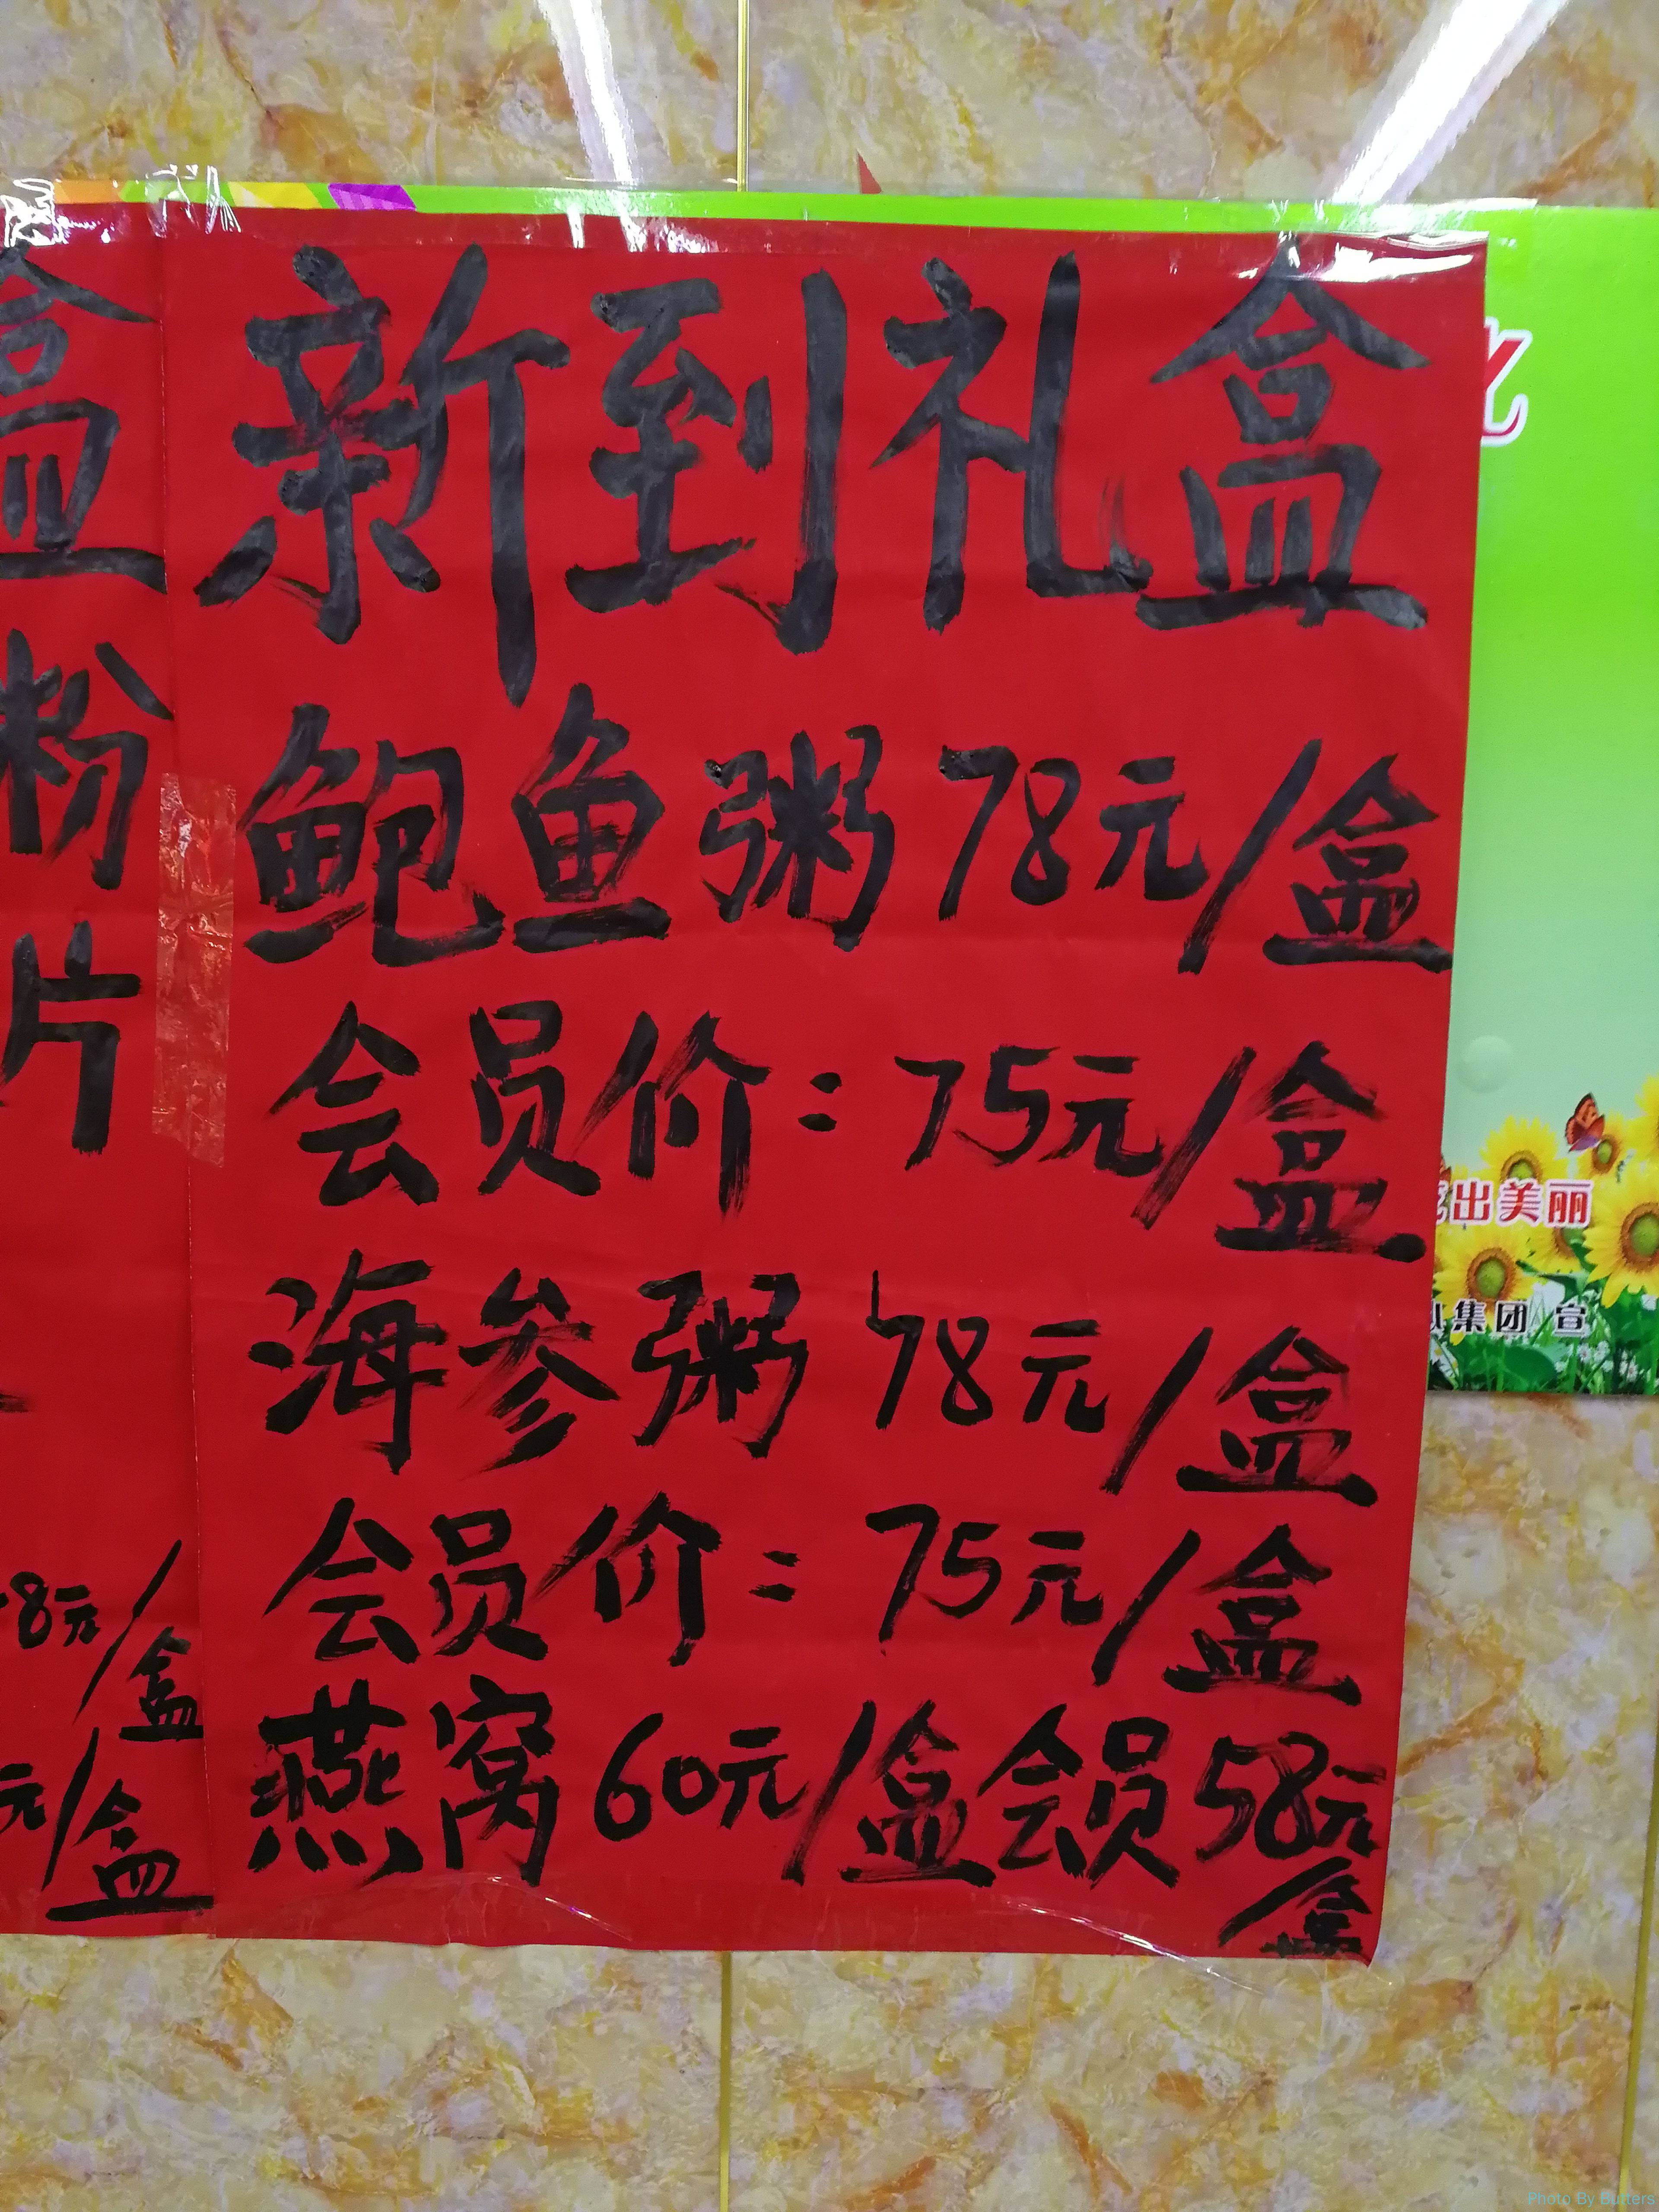 新到礼盒
鲍鱼粥78元/盒
会员价:75元/盒
海参粥78元/盒
会员价:75元/盒
燕窝60元/盒会员58元/盒
盒
粉
片
8元/盒
元/盒
出美丽
集团 宣
Photo By Butters